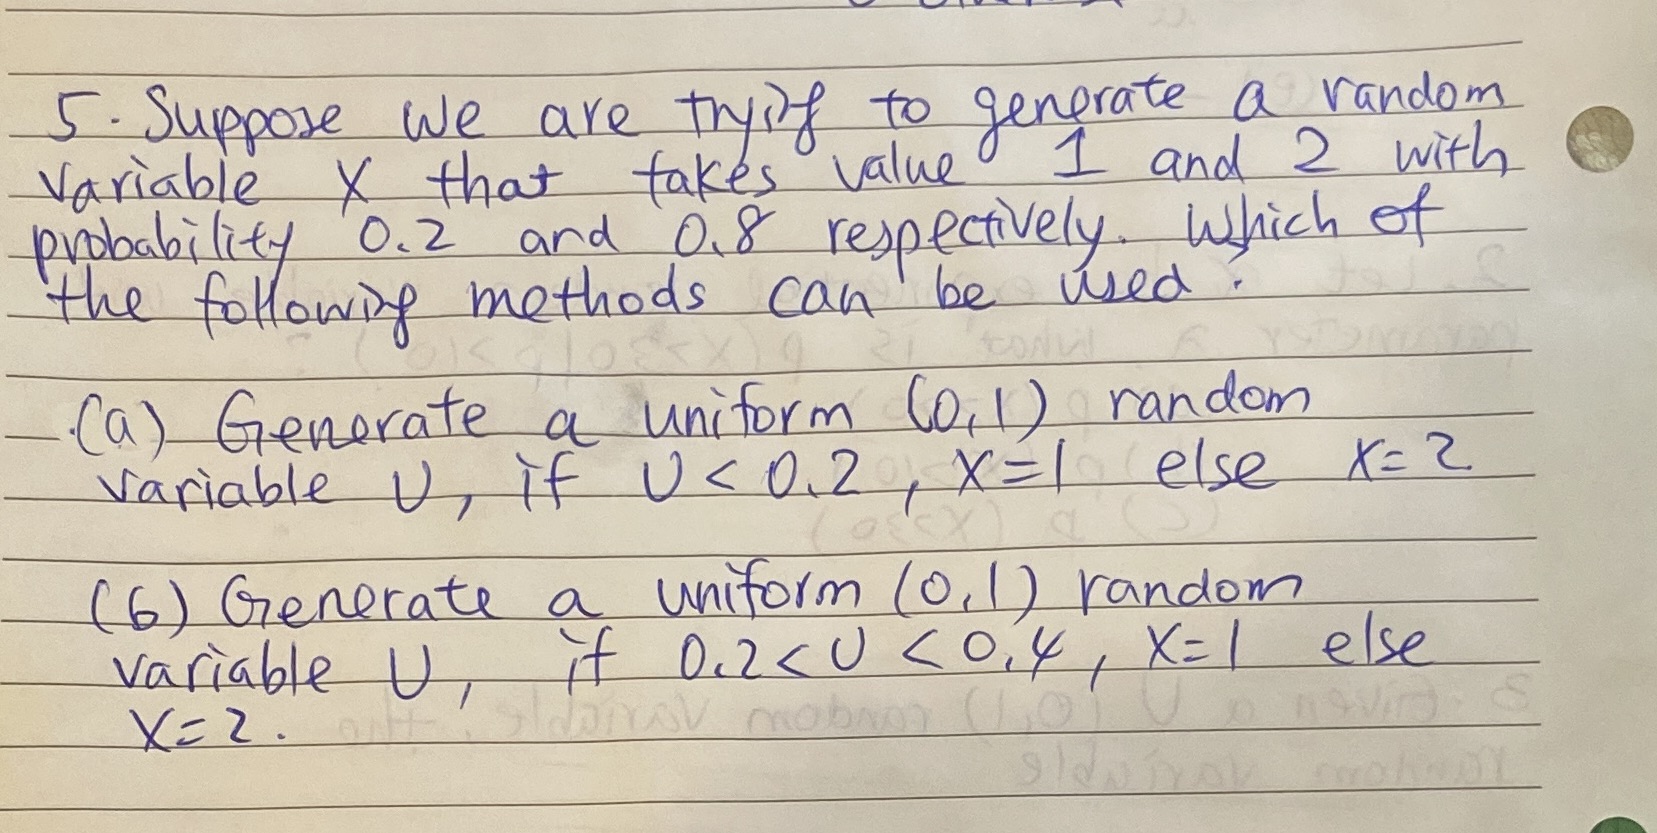 5. Suppose we are trying to generate a random
variable X that takes value 1 and 2 with
probability 0.2 and 0.8 respectively. Which of
the following methods can be used.
(a) Generate a uniform (0,1) random
variable U, if U < 0.2, X=1 else X=2
(b) Generate a uniform (0,1) random
variable U, if 0.2 < U < 0.4, X=1 else
X=2.